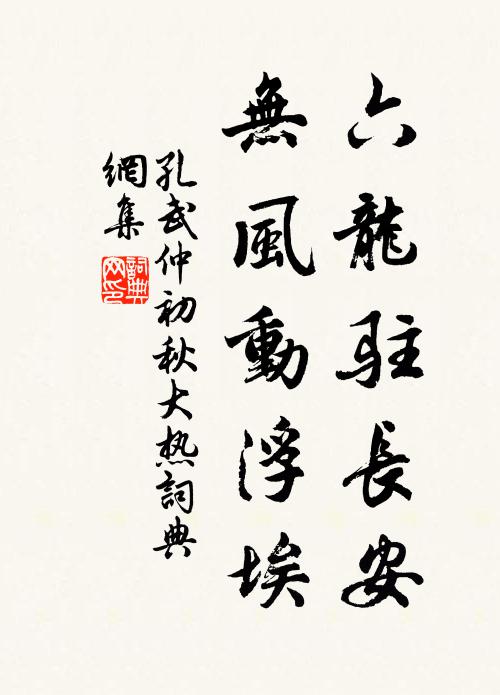 六龍駐長安
無風動浮埃
孔武仲初秋大热詞典
網集
詞典
网印